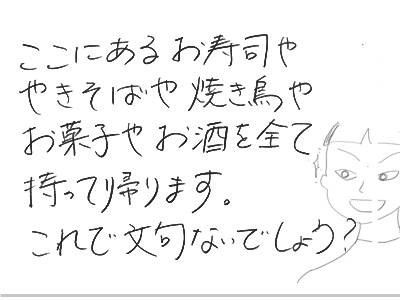 ここにあるお寿司や
やきそばや焼き鳥や
お菓子やお酒を全て
持って帰ります。
これで文句ないでしょう?